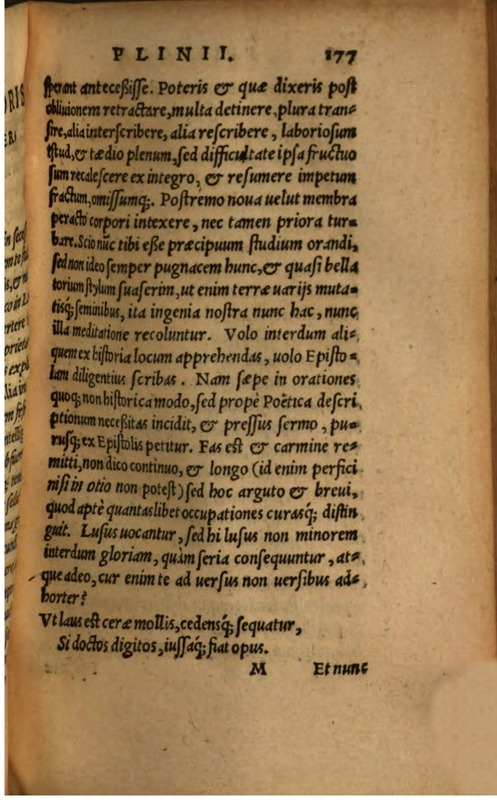 PLINII. 177
sperant anteceßisse. Poteris & quæ dixeris post
obliuionem retractare, multa detinere, plura tran-
sire, alia interscribere, alia rescribere, laboriosum
istud, & tædio plenum, sed difficultate ipsa fructuo
sum recalescere ex integro, & resumere impetum
fractum, omissumq;. Postremo noua uelut membra
peracto corpori intexere, nec tamen priora tur-
bare. Scio nũc tibi eße præcipuum studium orandi,
sed non ideo semper pugnacem hunc, & quasi bella
torium stylum suaserim, ut enim terræ uarijs muta-
tisq; seminibus, ita ingenia nostra nunc hac, nunc
illa meditatione recoluntur. Volo interdum ali-
quem ex historia locum apprehendas, uolo Episto-
lam diligentius scribas. Nam sæpe in orationes
quoq; non historica modo, sed propè Poëtica descri
ptionum neceßitas incidit, & pressus sermo, pu-
rusq; ex Epistolis petitur. Fas est & carmine re-
mitti, non dico continuo, & longo (id enim perfici
nisi in otio non potest) sed hoc arguto & breui,
quod aptè quantaslibet occupationes curasq; distin
guit. Lusus uocantur, sed hi lusus non minorem
interdum gloriam, quàm seria consequuntur, at-
que adeo, cur enim te ad uersus non uersibus ad-
horter?
Vt laus est ceræ mollis, cedensq; sequatur,
Si doctos digitos, iussaq́; fiat opus.
M Et nunc